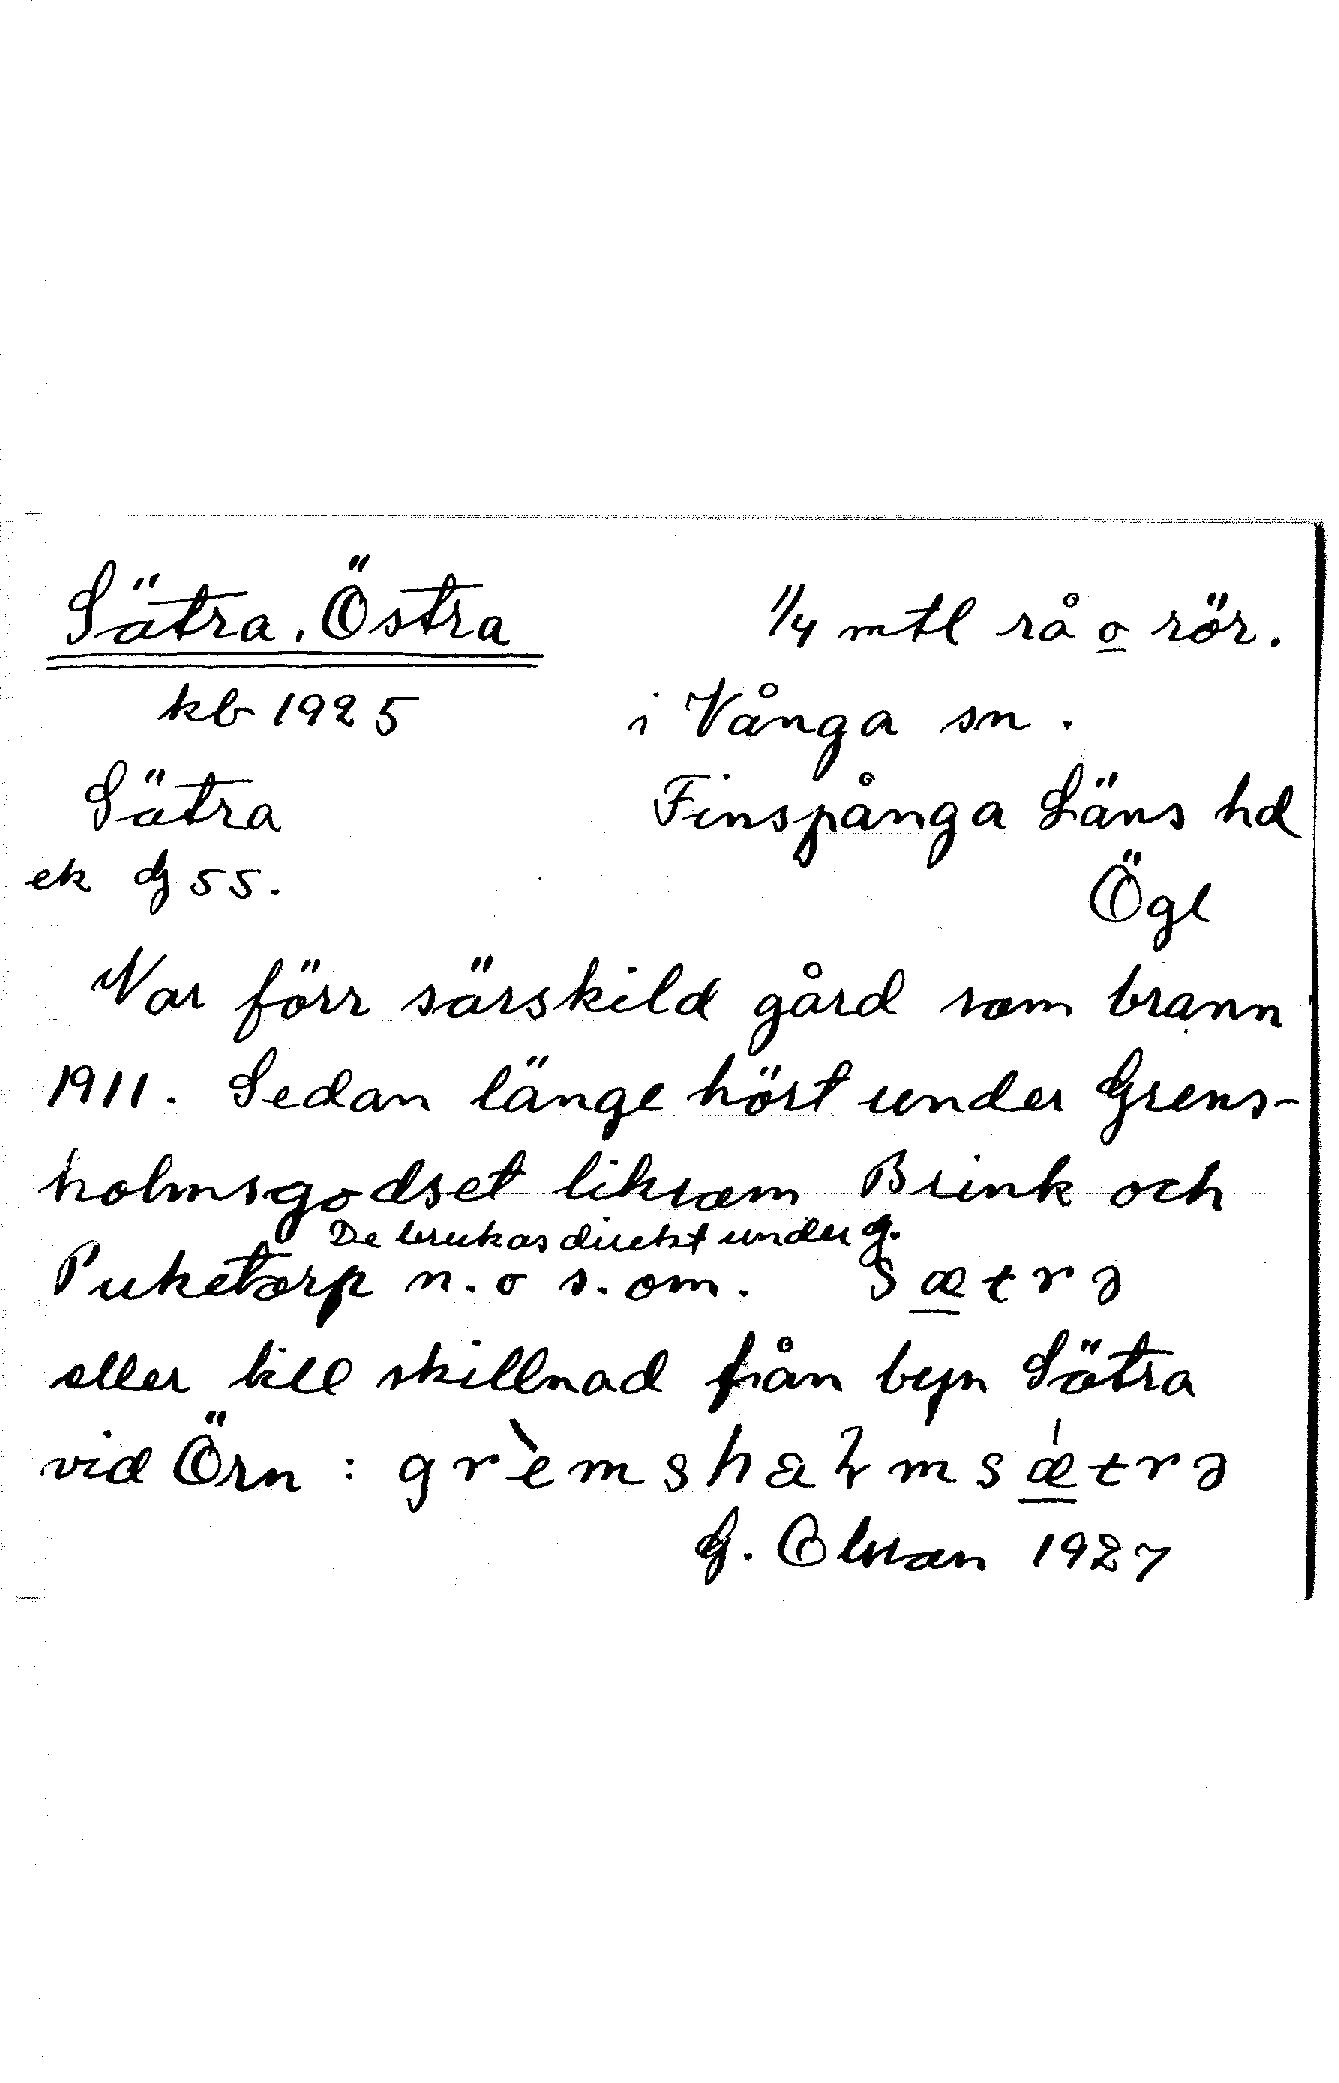 Sätra. Östra 1/4 mtl rå o rör.
kb 1925 i Vånga sn.
Sätra Finspånga Läns hd
ek dj 55. Ögl
Var förr särskild gård som brann
1911. Sedan länge hört under Grens-
holmsgodset liksom Brink och
De brukas direkt under g.
Puketorp n. o s. om. sætrə
eller till skillnad från byn Sätra
vid Örn: grèmshaɬmsǽtrə
G. Olsson 1927